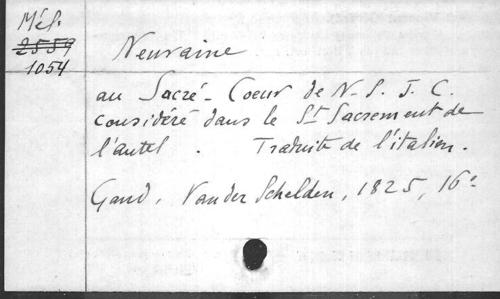 Mél.
2559
1054
Neuvaine
au Sacré-Coeur de N.S.J.C.
considéré dans le St Sacrement de
l'autel. Traduite de l'italien.
Gand, Vander Schelden, 1825, 16°